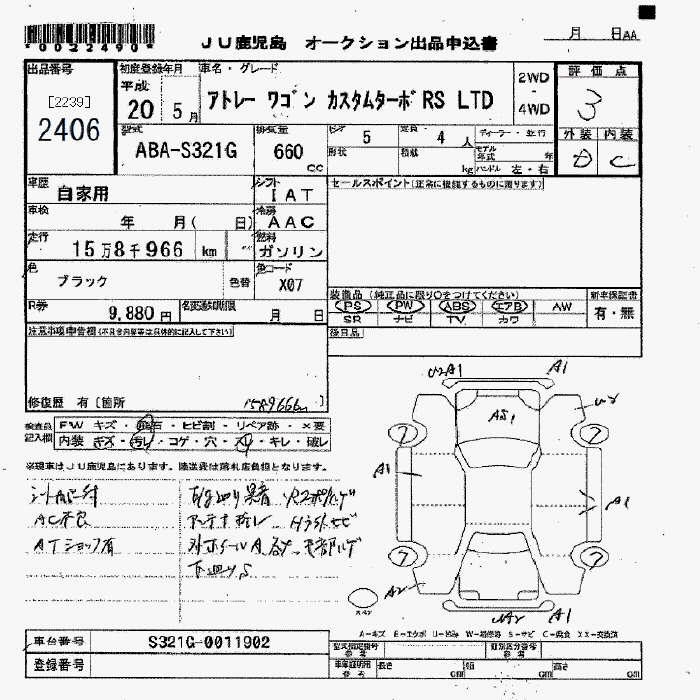 *00022490*
JU鹿児島 オークション出品申込書
月 日AA
出品番号
[2239]
2406
初度登録年月
平成
20 5月
車名・グレード
アトレー ワゴン カスタムターボ RS LTD
2WD
-
4WD
評価点
3
外装 内装
D C
型式
ABA-S321G
排気量
660
cc
ドア 5
定員 4人
ディーラー・並行
形状
積載 kg
モデル年式 年
ハンドル 左・右
車歴
自家用
シフト
IAT
セールスポイント(正常に機能するものに限ります)
車検
年 月( 日)
冷房
AAC
走行
15万8千966 km
燃料
ガソリン
色
ブラック
色替
色コード
X07
装備品(純正品に限り○をつけてください)
新車保証書
PS PW ABS エアB AW
有・無
SR ナビ TV カワ
R券
9,880円
名変通知期限
月 日
注意事項申告欄(不具合内容等は具体的に記入して下さい)
後日品
修復歴 有〔箇所
158966km
検査員
記入欄
FW キズ・飛石・ヒビ割・リペア跡・×要
内装・キズ・汚レ・コゲ・穴・スレ・キレ・破レ
※現車はJU鹿児島にあります。陸送費は落札店負担となります。
AC不良
ATショック有
下廻りS
U2 A1
A1
A51
U2
A1
A1
A2
A1
7
7
7
7
スペア
A-キズ E-エクボ U-凹み W-補修跡 S-サビ C-腐食 XX-交換済
車台番号
S321G-0011902
登録番号
型式指定番号
参考
類別区分番号
参考
車年証明用
参考
長さ cm
幅 cm
高さ cm